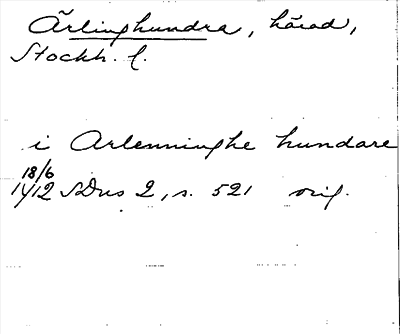 Ärlinghundra, härad,
Stockh. l.
i Arlenninghe hundare
18/6
1412 SDns 2, s. 521 orig.